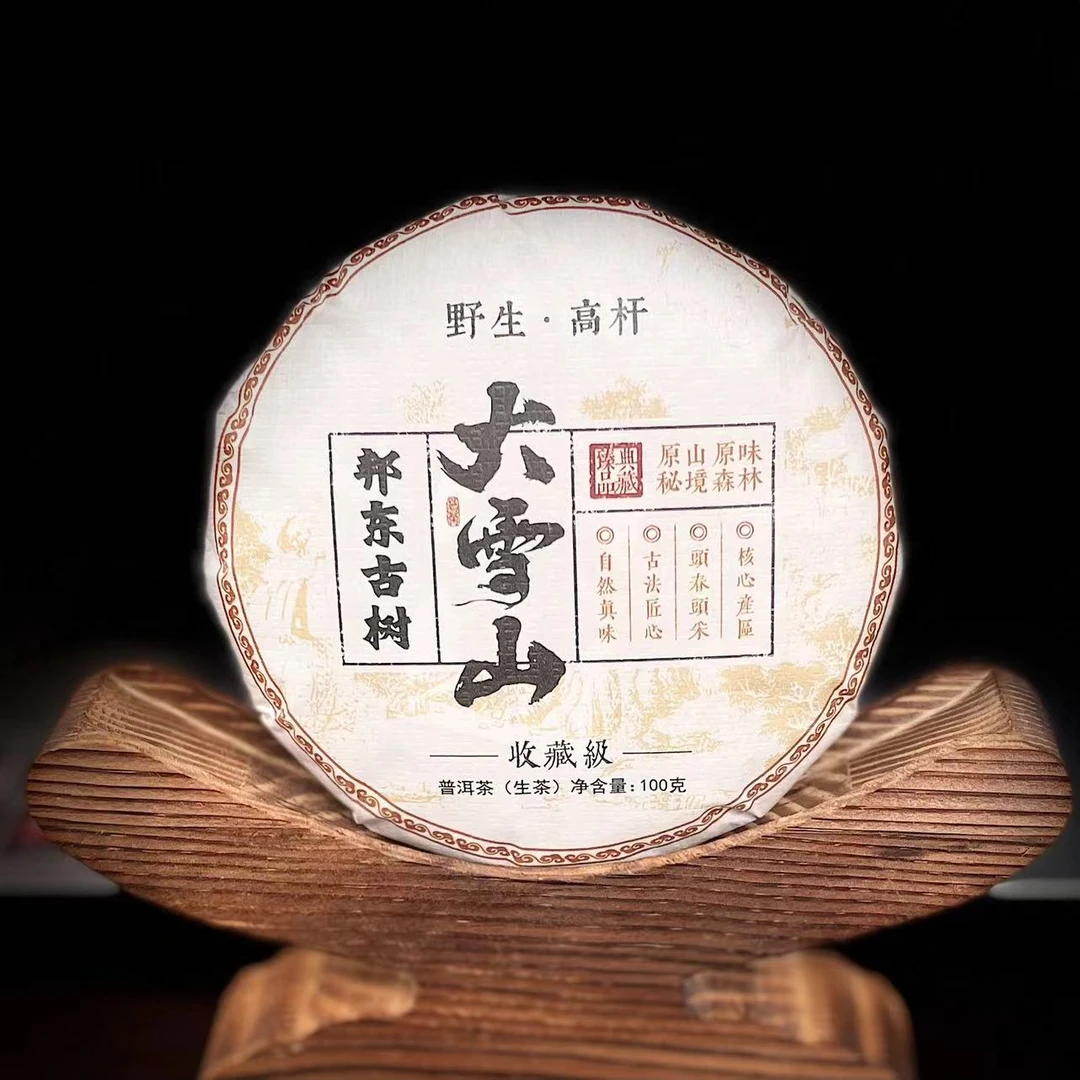 野生·高杆
大雪山
邦东古树
典藏
臻品
原山原味
秘境森林
核心產區
頭春頭采
古法匠心
自然真味
收藏級
普洱茶（生茶）净含量：100克